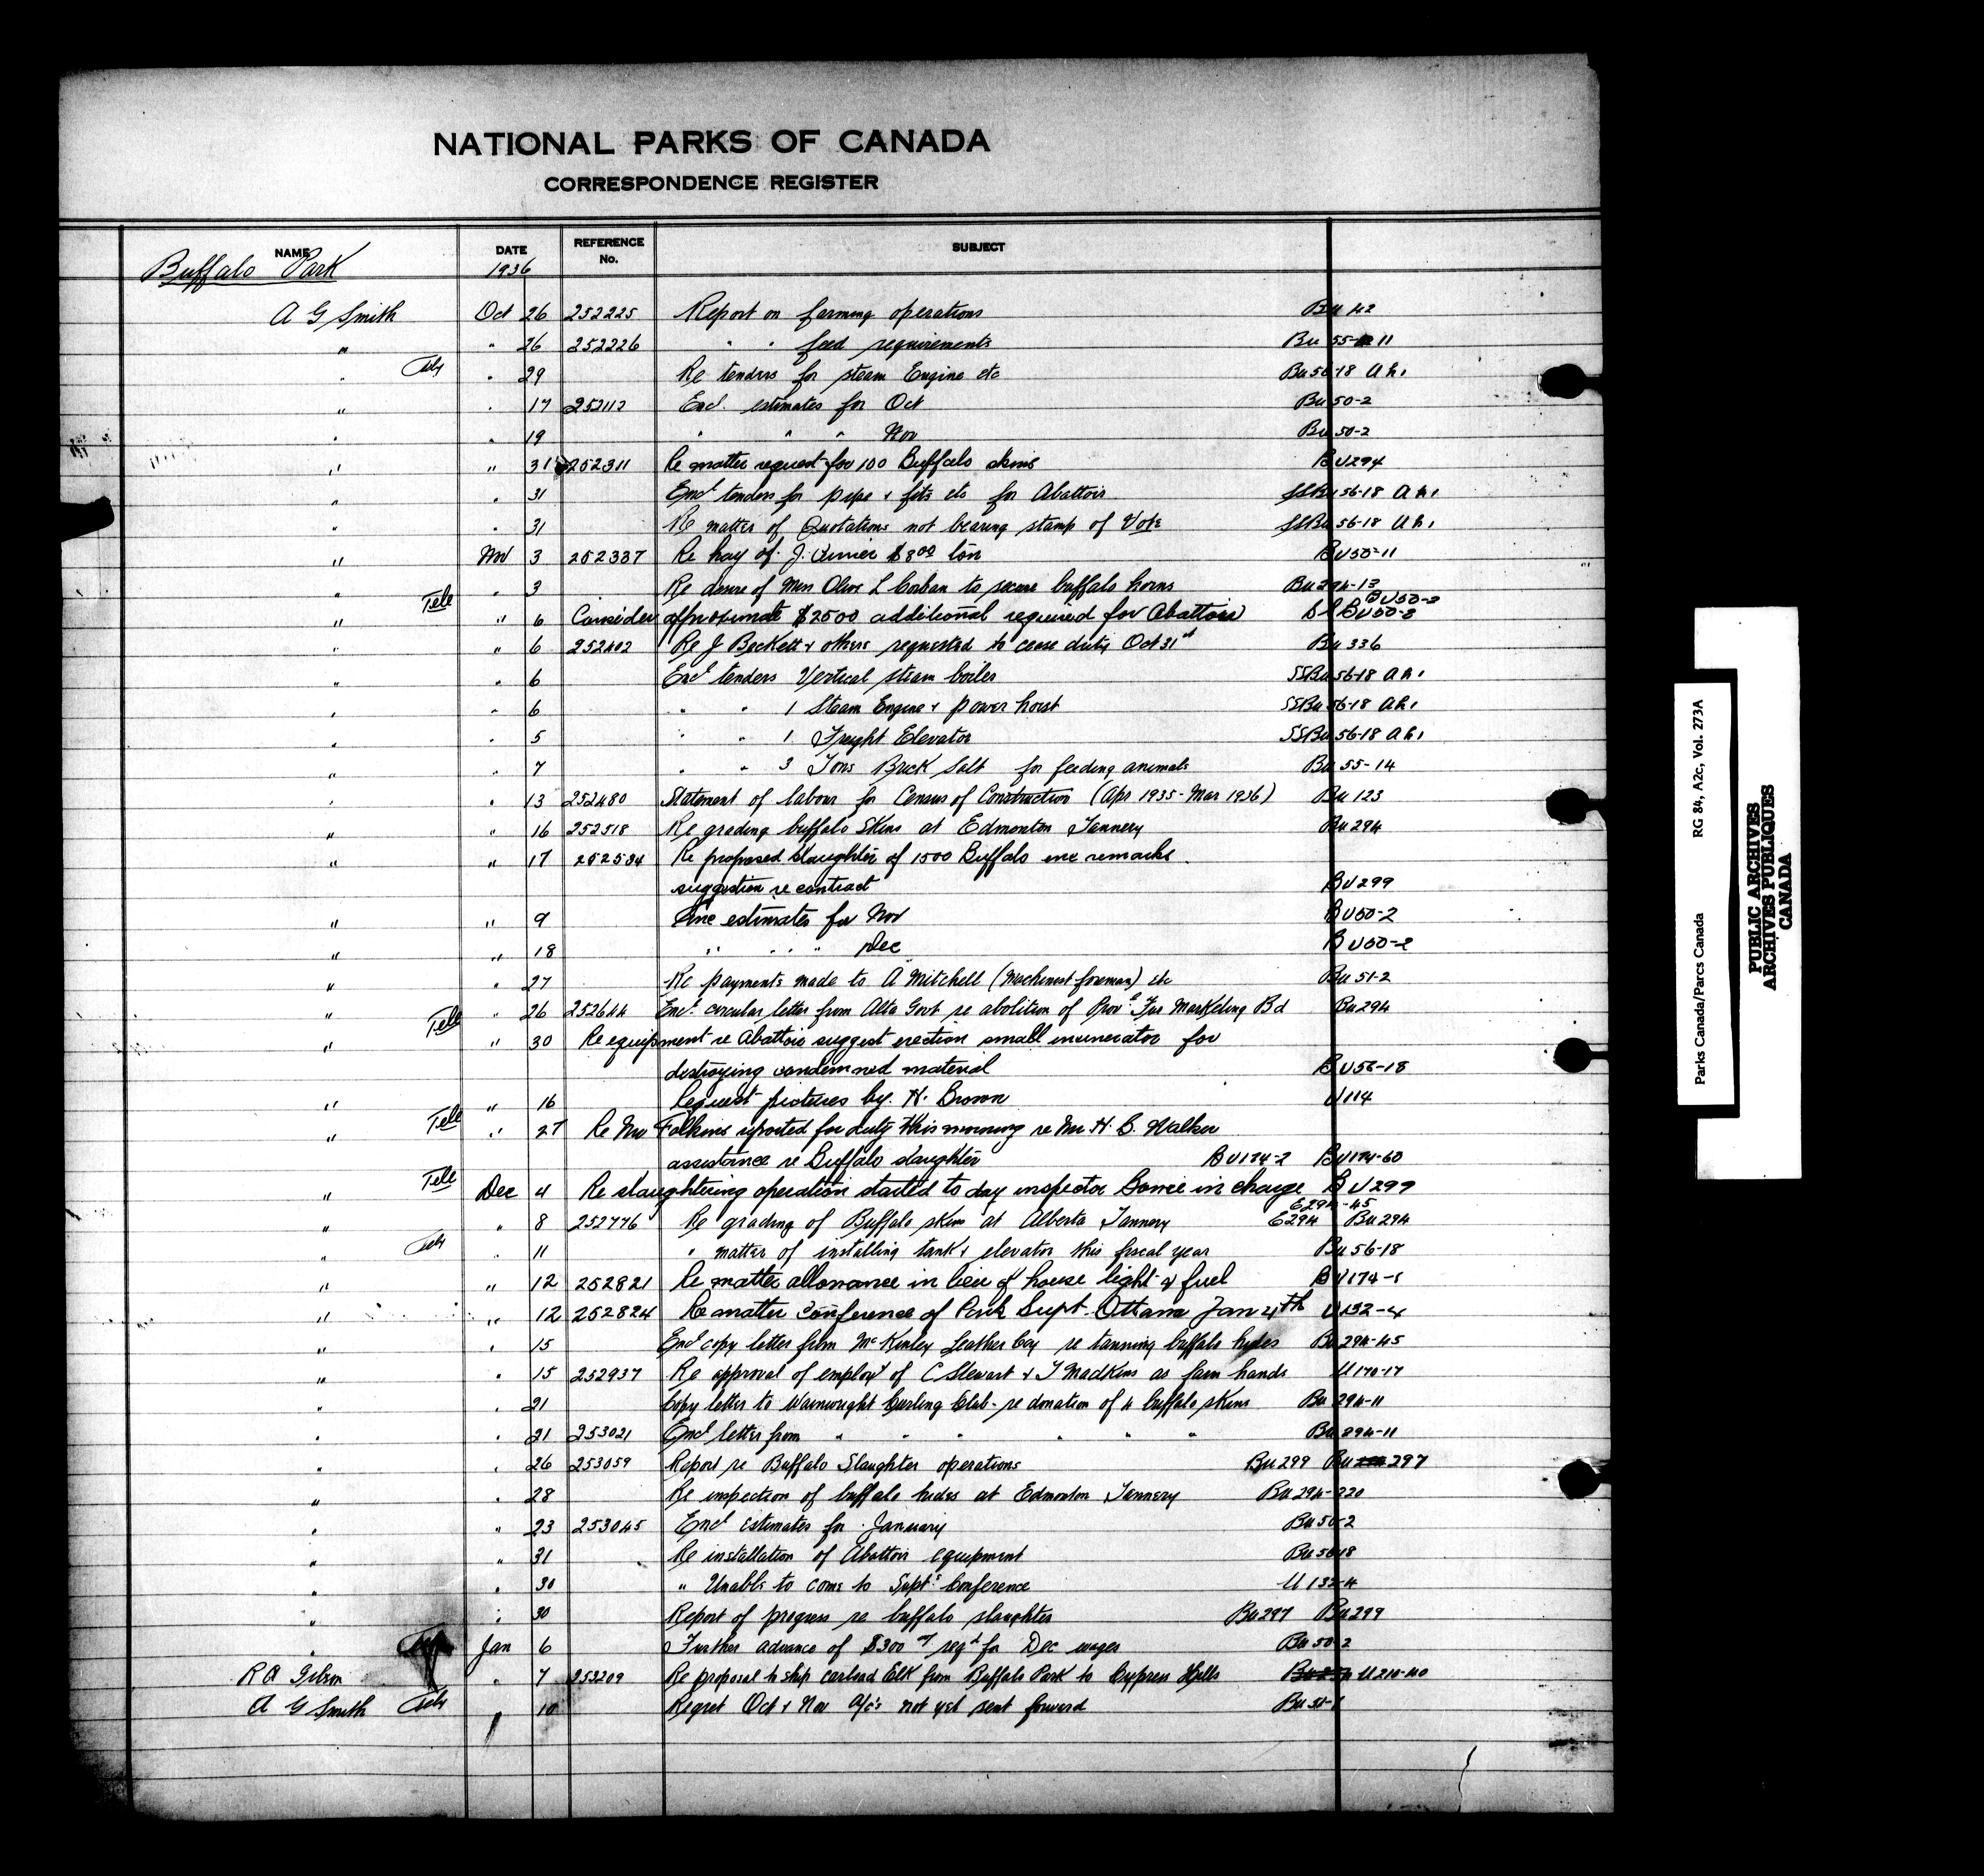 NATIONAL PARKS OF CANADA
CORRESPONDENCE REGISTER
NAME DATE REFERENCE No. SUBJECT
Buffalo Park 1936
A G Smith Oct 26 252225 Report on farming operations Bu 42
" " 26 252226 " " feed requirements Bu 55-11
" " 29 Re tenders for steam Engine etc Bu 56-18 Ah1
" " 17 252112 Encl. estimates for Oct Bu 50-2
" " 19 " " " Nov Bu 50-2
" " 31 252311 Re matter request for 100 Buffalo skins BU294
" " 31 Encl tenders for pipe & fits etc for Abattoir SSBu 56-18 Ah1
" " 31 Re matter of Quotations not bearing stamp of Vote SSBu 56-18 Ah1
" Nov 3 252337 Re hay of J. $8.00 ton BU50-11
" " 3 Re desire of Miss Olive L Corban to secure buffalo horns Bu 294-13
BU50-2
" Tele " 6 Consider approximate $2500 additional required for Abattoir BU50-3
" " 6 252402 Re J Beckett & others requested to cease duty Oct 31st Bu 336
" " 6 Encl tenders Vertical steam boiler SSBu 56-18 Ah1
" " 6 " " 1 Steam Engine & power hoist SSBu 56-18 Ah1
" " 5 " " 1 Freight Elevator SSBu 56-18 Ah1
" " 7 " " 3 Tons Brick Salt for feeding animals Bu 55-14
" " 13 252480 Statement of labour for Census of Construction (Apr 1935 - Mar 1936) Bu 123
" " 16 252518 Re grading buffalo skins at Edmonton Tannery Bu 294
" " 17 252534 Re proposed slaughter of 1500 Buffalo enc remarks
suggestion re contract BU299
" " 9 Enc estimates for Nov BU50-2
" " 18 " " " Dec BU50-2
" " 27 Re payments made to A Mitchell (Machinest foreman) etc Bu 51-2
" " 26 252644 Encl. circular letter from Alta Govt re abolition of Prov. Fur Marketing Bd Bu 294
" Tele " 30 Re equipment re Abattoir suggest erection small incinerator for
destroying condemned material BU56-18
" " 16 Request pictures by H. Brown U114
" Tele " 27 Re Mr Folkins reported for duty this morning re Mr H. B. Walker
assistance re Buffalo slaughter BU174-2 BU174-60
" Tele Dec 4 Re slaughtering operation started to day inspector in charge BU299
E294-45
" " 8 252776 Re grading of Buffalo skins at Alberta Tannery E294 Bu 294
" " 11 " matter of installing tank & elevator this fiscal year Bu 56-18
" " 12 252821 Re matter allowance in lieu of house light & fuel BU174-5
" " 12 252824 Re matter conference of Park Supt. Ottawa Jan 4th U132-4
" " 15 Encl copy letter from McKinley Leather Coy re tanning buffalo hides Bu 294-45
" " 15 252937 Re approval of employt of C Stewart & T Madkins as farm hands U 170-17
" " 21 Copy letter to Wainwright Curling Club - re donation of 4 buffalo skins Bu 294-11
" " 21 253021 Encl letter from " " " " " " Bu 294-11
" " 26 253059 Report re Buffalo Slaughter operations Bu 299 Bu 297
" " 28 Re inspection of buffalo hides at Edmonton Tannery Bu 294-220
" " 23 253045 Encl estimates for January Bu 50-2
" " 31 Re installation of Abattoir equipment Bu 56-18
" " 30 " Unable to come to Supts Conference U 132-4
" " 30 Report of progress re buffalo slaughter Bu 297 Bu 299
" Jan 6 Further advance of $300 reqd for Dec wages Bu 50-2
R A Gibson " 7 253209 Re proposal to ship carload Elk from Buffalo Park to Cypress Hills U 210-40
A G Smith " 10 Regret Oct & Nov A/c's not yet sent forward Bu 51-1
Parks Canada/Parcs Canada RG 84, A2c, Vol. 273A
PUBLIC ARCHIVES
ARCHIVES PUBLIQUES
CANADA